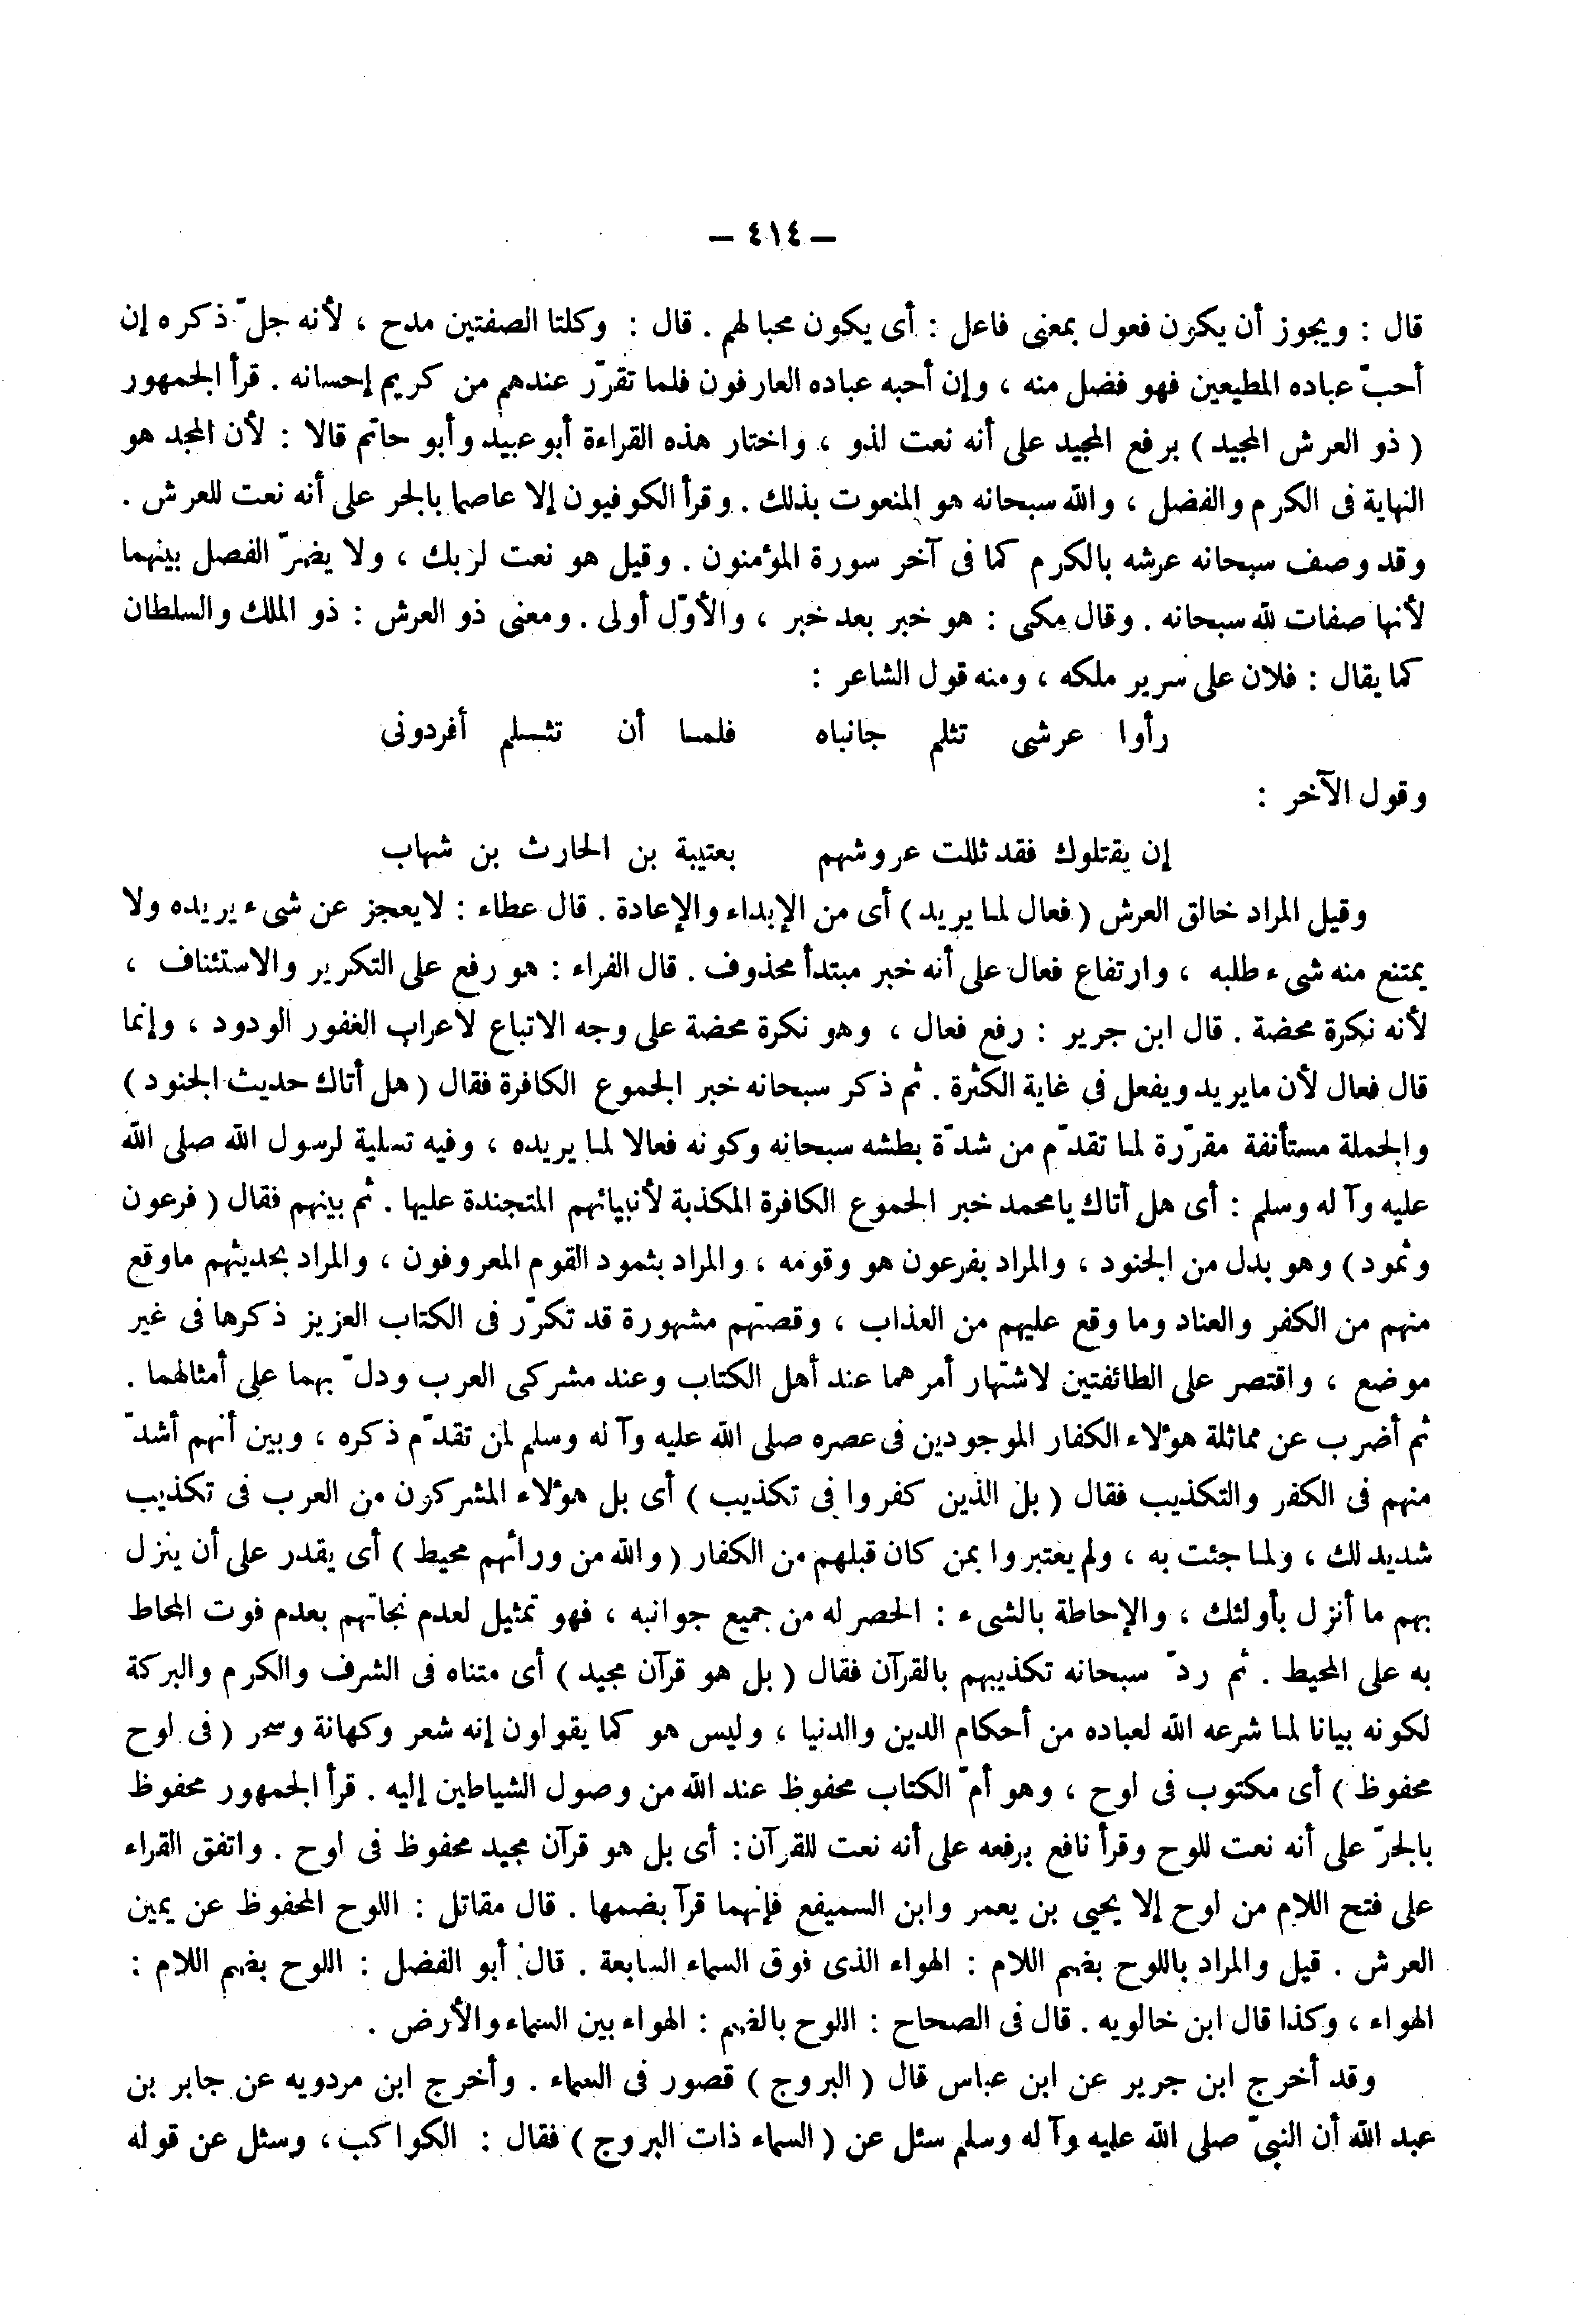 — ٤١٤ —
قال : ويجوز أن يكون فعول بمعنى فاعل : أى يكون محبا لهم . قال : وكلتا الصفتين مدح ، لأنه جلّ ذكره إن
أحبّ عباده المطيعين فهو فضل منه ، وإن أحبه عباده العارفون فلما تقرّر عندهم من كريم إحسانه . قرأ الجمهور
( ذو العرش المجيد ) برفع المجيد على أنه نعت لذو ، واختار هذه القراءة أبو عبيد وأبو حاتم قالا : لأن المجد هو
النهاية فى الكرم والفضل ، والله سبحانه هو المنعوت بذلك . وقرأ الكوفيون إلا عاصما بالجر على أنه نعت للعرش .
وقد وصف سبحانه عرشه بالكرم كما فى آخر سورة المؤمنون . وقيل هو نعت لربك ، ولا يضرّ الفصل بينهما
لأنها صفات لله سبحانه . وقال مكى : هو خبر بعد خبر ، والأوّل أولى . ومعنى ذو العرش : ذو الملك والسلطان
كما يقال : فلان على سرير ملكه ، ومنه قول الشاعر :
رأوا عرشى تثلم جانباه فلمــا أن تثــلم أفردونى
وقول الآخر :
إن يقتلوك فقد ثللت عروشهم بعتيبة بن الحارث بن شهاب
وقيل المراد خالق العرش ( فعال لمـا يريد ) أى من الإبداء والإعادة . قال عطاء : لا يعجز عن شىء يريده ولا
يمتنع منه شىء طلبه ، وارتفاع فعال على أنه خبر مبتدأ محذوف . قال الفراء : هو رفع على التكرير والاستئناف ،
لأنه نكرة محضة . قال ابن جرير : رفع فعال ، وهو نكرة محضة على وجه الاتباع لاعراب الغفور الودود ، وإنما
قال فعال لأن مايريد ويفعل فى غاية الكثرة . ثم ذكر سبحانه خبر الجموع الكافرة فقال ( هل أتاك حديث الجنود )
والجملة مستأنفة مقرّرة لمـا تقدّم من شدّة بطشه سبحانه وكونه فعالا لمـا يريده ، وفيه تسلية لرسول الله صلى الله
عليه وآله وسلم : أى هل أتاك يا محمد خبر الجموع الكافرة المكذبة لأنبيائهم المتجندة عليها . ثم بينهم فقال ( فرعون
وثمود ) وهو بدل من الجنود ، والمراد بفرعون هو وقومه ، والمراد بثمود القوم المعروفون ، والمراد بحديثهم ماوقع
منهم من الكفر والعناد وما وقع عليهم من العذاب ، وقصتهم مشهورة قد تكرّر فى الكتاب العزيز ذكرها فى غير
موضع ، واقتصر على الطائفتين لاشتهار أمرهما عند أهل الكتاب وعند مشركى العرب ودلّ بهما على أمثالهما .
ثم أضرب عن مماثلة هؤلاء الكفار الموجودين فى عصره صلى الله عليه وآله وسلم لمن تقدّم ذكره ، وبين أنهم أشدّ
منهم فى الكفر والتكذيب فقال ( بل الذين كفروا فى تكذيب ) أى بل هؤلاء المشركون من العرب فى تكذيب
شديد لك ، ولمـا جئت به ، ولم يعتبروا بمن كان قبلهم من الكفار ( والله من ورائهم محيط ) أى يقدر على أن ينزل
بهم ما أنزل بأولئك ، والإحاطة بالشىء : الحصر له من جميع جوانبه ، فهو تمثيل لعدم نجاتهم بعدم فوت المحاط
به على المحيط . ثم ردّ سبحانه تكذيبهم بالقرآن فقال ( بل هو قرآن مجيد ) أى متناه فى الشرف والكرم والبركة
لكونه بيانا لمـا شرعه الله لعباده من أحكام الدين والدنيا ، وليس هو كما يقولون إنه شعر وكهانة وسحر ( فى لوح
محفوظ ) أى مكتوب فى لوح ، وهو أمّ الكتاب محفوظ عند الله من وصول الشياطين إليه . قرأ الجمهور محفوظ
بالجرّ على أنه نعت للوح وقرأ نافع برفعه على أنه نعت للقرآن : أى بل هو قرآن مجيد محفوظ فى لوح . واتفق القراء
على فتح اللام من لوح إلا يحيى بن يعمر وابن السميفع فإنهما قرآ بضمها . قال مقاتل : اللوح المحفوظ عن يمين
العرش . قيل والمراد باللوح بضم اللام : الهواء الذى فوق السماء السابعة . قال أبو الفضل : اللوح بضم اللام :
الهواء ، وكذا قال ابن خالويه . قال فى الصحاح : اللوح بالضم : الهواء بين السماء والأرض .
وقد أخرج ابن جرير عن ابن عباس قال ( البروج ) قصور فى السماء . وأخرج ابن مردويه عن جابر بن
عبد الله أن النبىّ صلى الله عليه وآله وسلم سئل عن ( السماء ذات البروج ) فقال : الكواكب ، وسئل عن قوله